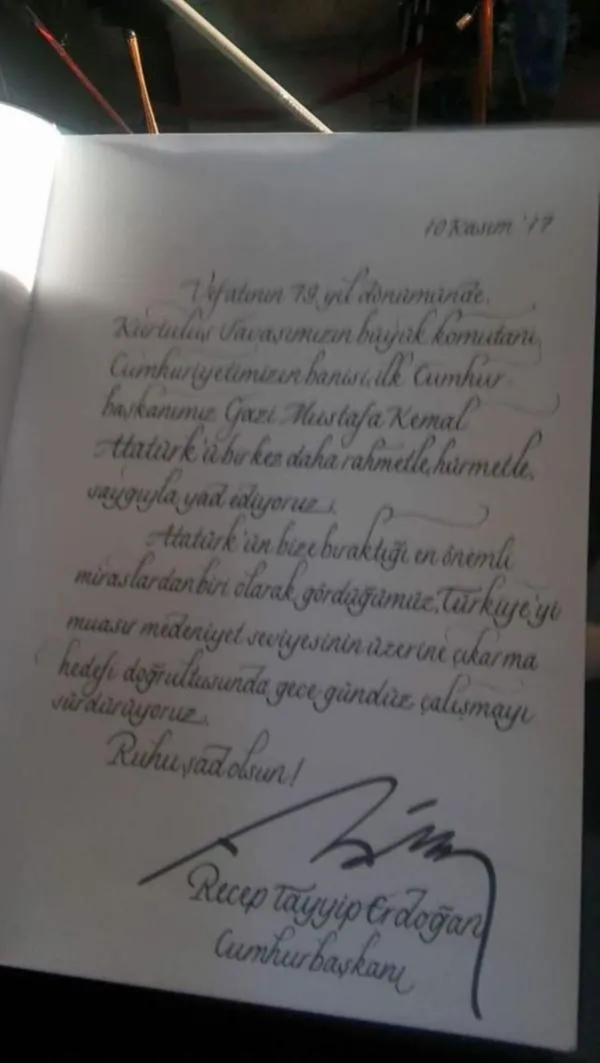 10 Kasım '17
Vefatının 79. yıl dönümünde,
Kurtuluş Savaşımızın büyük komutanı,
Cumhuriyetimizin banisi, ilk Cumhur-
başkanımız Gazi Mustafa Kemal
Atatürk'ü bir kez daha rahmetle, hürmetle,
saygıyla yad ediyoruz.
Atatürk'ün bize bıraktığı en önemli
miraslardan biri olarak gördüğümüz, Türkiye'yi
muasır medeniyet seviyesinin üzerine çıkarma
hedefi doğrultusunda gece gündüz çalışmayı
sürdürüyoruz.
Ruhu şad olsun!
Recep Tayyip Erdoğan
Cumhurbaşkanı